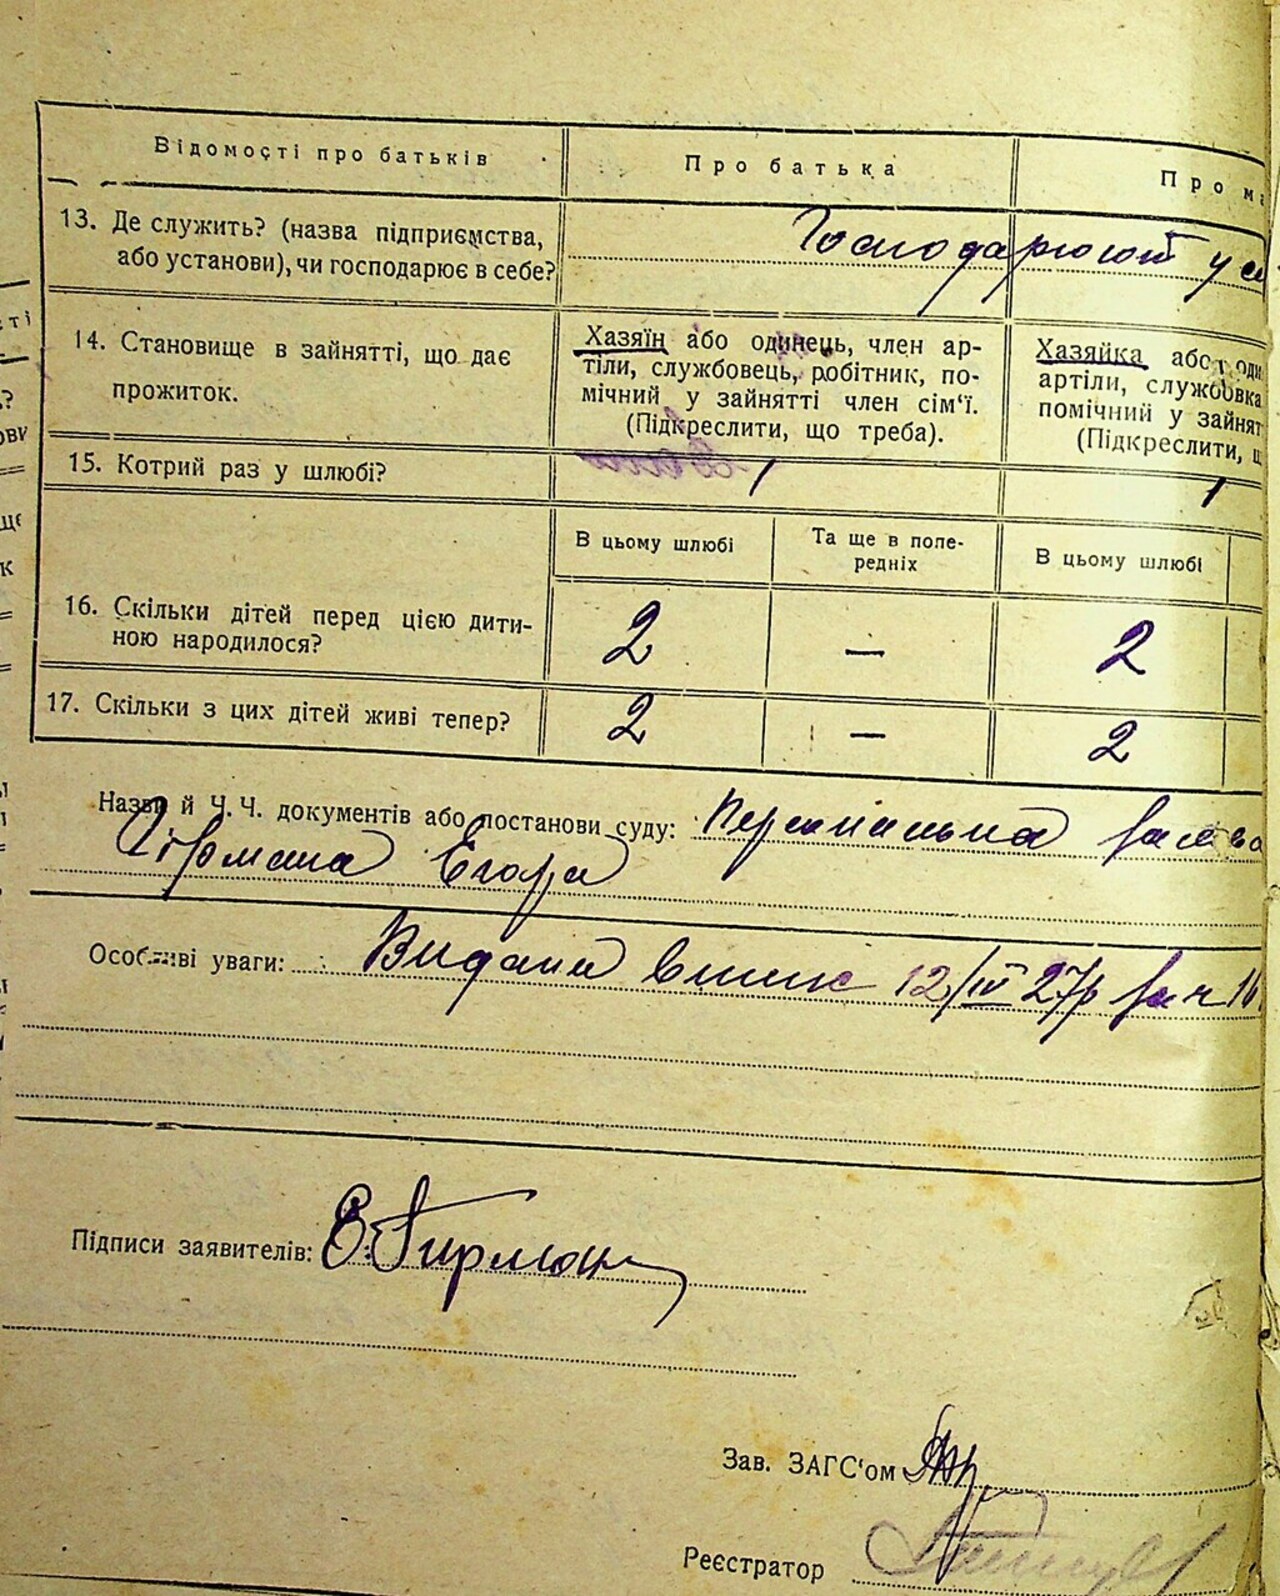 Відомості про батьків
Про батька
Про
13. Де служить? (назва підприємства,
або установи), чи господарює в себе?
Господарюют у
14. Становище в зайнятті, що дає
прожиток.
Хазяїн або одинець, член ар-
тіли, службовець, робітник, по-
мічний у зайнятті член сім‘ї.
(Підкреслити, що треба).
Хазяйка або
артіли, службовка
помічний у зайнят
(Підкреслити,
15. Котрий раз у шлюбі?
1
1
В цьому шлюбі
Та ще в попе-
редніх
В цьому шлюбі
16. Скільки дітей перед цією дити-
ною народилося?
2
—
2
17. Скільки з цих дітей живі тепер?
2
—
2
Назви й Ч. Ч. документів або постанови суду: Персональна заява
Гірмана Егора
Особливі уваги: Видано 12/IV 27р за ч 16
Підписи заявителів: Е. Гирман
Зав. ЗАГС‘ом
Реєстратор